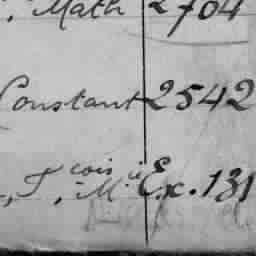 , Math 2704
Constant 2542
, F.cois M.ie Ex. 131